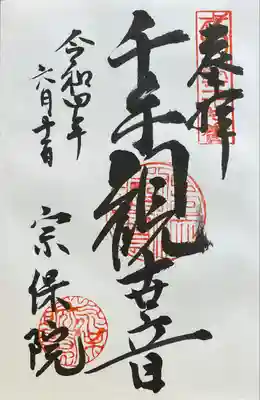 奉拝
千手観世音
令和四年
六月十一日
宗保院